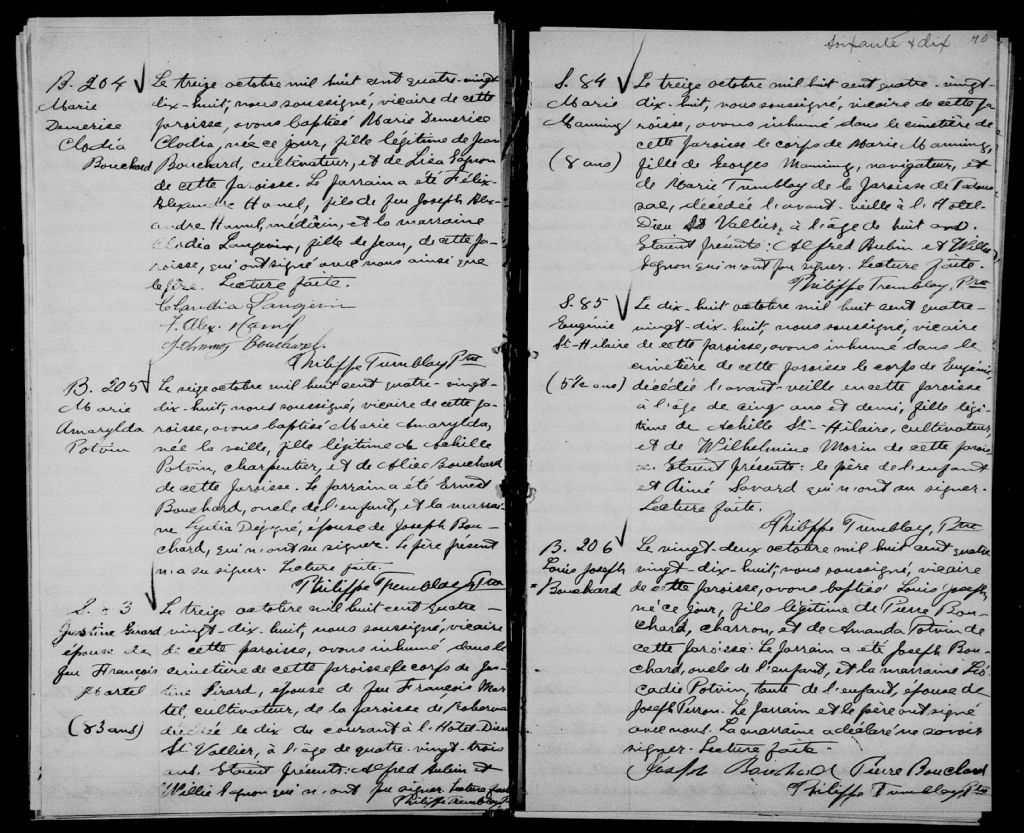 B. 204
Marie
Demerise
Clodia
Bouchard
Le treize octobre mil huit cent quatre-vingt
dix-huit, nous soussigné, vicaire de cette
paroisse, avons baptisé Marie Demerise
Clodia, née ce jour, fille légitime de Jean
Bouchard, cultivateur, et de Lisa Gagnon
de cette paroisse. Le parrain a été Félix-
Alexandre Hamel, fils de feu Joseph Alex-
andre Hamel, médecin, et la marraine
Clodia Langevin, fille de Jean, de cette pa-
roisse, qui ont signé avec nous ainsi que
le père. Lecture faite.
Claudia Langevin
F. Alex. Hamel
Bouchard.
Philippe Tremblay Ptre
B. 205
Marie
Amarylda
Potvin
Le seize octobre mil huit cent quatre-vingt-
dix-huit, nous soussigné, vicaire de cette pa-
roisse, avons baptisé Marie Amarylda,
née la veille, fille légitime de Achille
Potvin, charpentier, et de Alice Bouchard
de cette paroisse. Le parrain a été Ernest
Bouchard, oncle de l'enfant, et la marrai-
ne Lydia, épouse de Joseph Bou-
chard, qui n'ont su signer. Le père présent
n'a su signer. Lecture faite.
Philippe Tremblay Ptre
S. 83
Justine Girard
épouse de
feu François
Martel
(83 ans)
Le treize octobre mil huit cent quatre-
vingt-dix-huit, nous soussigné, vicaire
de cette paroisse, avons inhumé dans le
cimetière de cette paroisse le corps de Jus-
tine Girard, épouse de feu François Mar-
tel, cultivateur, de la paroisse de Roberval
décédée le dix du courant à l'Hotel-Dieu
St Vallier, à l'âge de quatre-vingt-trois
ans. Etaient présents: Alfred Aubin et
Willie Gagnon qui n'ont pu signer. Lecture faite
Philippe Tremblay P
soixante & dix 70
S. 84
Marie
Manning
(8 ans)
Le treize octobre mil huit cent quatre-vingt-
dix-huit, nous soussigné, vicaire de cette pa-
roisse, avons inhumé dans le cimetière de
cette paroisse le corps de Marie Manning,
fille de Georges Manning, navigateur, et
de Marie Tremblay de la paroisse de Tadous-
sac, décédée l'avant-veille à l'Hotel-
Dieu St Vallier, à l'âge de huit ans.
Etaient présents: Alfred Aubin et Willie
Gagnon qui n'ont pu signer. Lecture faite.
Philippe Tremblay, Ptre
S. 85
Eugénie
St-Hilaire
(5½ ans)
Le dix-huit octobre mil huit cent quatre-
vingt-dix-huit, nous soussigné, vicaire
de cette paroisse, avons inhumé dans le
cimetière de cette paroisse le corps de Eugénie
décédée l'avant-veille en cette paroisse
à l'âge de cinq ans et demi, fille légi-
time de Achille St-Hilaire, cultivateur,
et de Wilhelmine Morin de cette parois-
se. Etaient présents: le père de l'enfant
et Aimé Savard qui n'ont su signer.
Lecture faite.
Philippe Tremblay, Ptre
B. 206
Louis Joseph
Bouchard
Le vingt-deux octobre mil huit cent quatre
vingt-dix-huit, nous soussigné, vicaire
de cette paroisse, avons baptisé Louis Joseph,
né ce jour, fils légitime de Pierre Bou-
chard, charron, et de Amanda Potvin de
cette paroisse. Le parrain a été Joseph Bou-
chard, oncle de l'enfant, et la marraine Léo-
cadie Potvin, tante de l'enfant, épouse de
Joseph Perron. Le parrain et le père ont signé
avec nous. La marraine a déclaré ne savoir
signer. Lecture faite.
Joseph Bouchard Pierre Bouchard
Philippe Tremblay Ptre